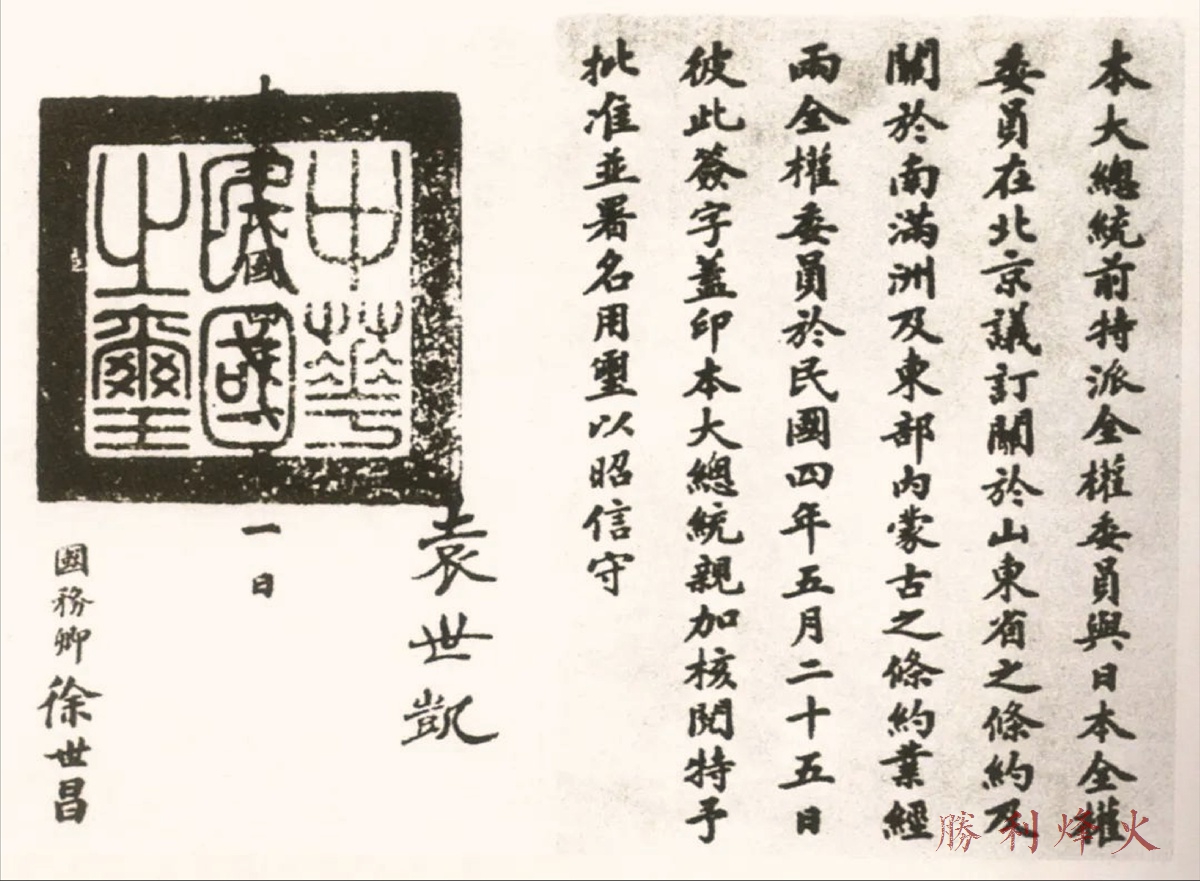 本大總統前特派全權委員與日本全權
委員在北京議訂關於山東省之條約及
關於南滿洲及東部內蒙古之條約業經
兩全權委員於民國四年五月二十五日
彼此簽字蓋印本大總統親加核閱特予
批准並署名用璽以昭信守
袁世凱
中華
民國
之璽
一日
國務卿徐世昌
勝利烽火